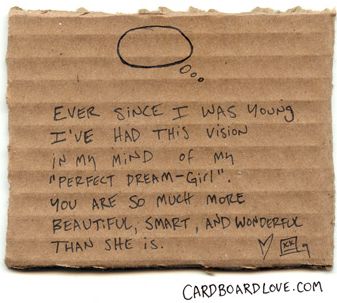 EVER SINCE I WAS YOUNG
I'VE HAD THIS VISION
IN MY MIND OF MY
"PERFECT DREAM-GIRL".
YOU ARE SO MUCH MORE
BEAUTIFUL, SMART, AND WONDERFUL
THAN SHE IS.
CARDBOARDLOVE.COM